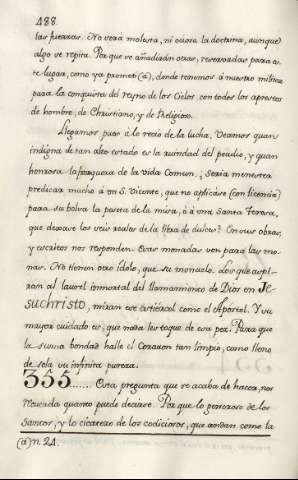 488.
las fuerzas. No verá molesta, ni ociosa la doctrina, aunque
algo ve repita. Por que ve añadirán otras, reservadas para es-
te lugar, como ya prometí (a), donde tenemos á nuestro militar
para la conquista del reyno de los Cielos con todos los aprestos
de hombre, de Christiano, y de Religioso.
Llegamos pues á lo recio de la lucha. Veamos quan
indigna de tan alto estado es la ruindad del peculio, y quan
honrosa la franqueza de la vida Comun. Sería menester
predicar mucho á un S. Vicente, que no aplicáse (con licencia)
para su bolsa la peseta de la misa, ó á una Santa Teresa,
que devore los seis reales de la libra de dulces? Con sus obras,
y escritos nos responden. Esas monadas ven para las mo-
nas. No tienen otro ídolo, que su monuelo. Los que aspi-
ran al laurel inmortal del llamamiento de Dios en JE-
suchristo, miran ese estiércol como el Apostol. Y su
mayor cuidado es, que nada les toque de esa pez. Para que
la suma bondad halle el Corazon tan limpio, como lleno
de sola su infinita pureza.
355...... Esta pregunta que se acaba de hacer, nos
recuerda quanto puede decirse. Por que lo generoso de los
Santos, y lo cicatero de los codiciosos, que andan como la
(a) n. 24.